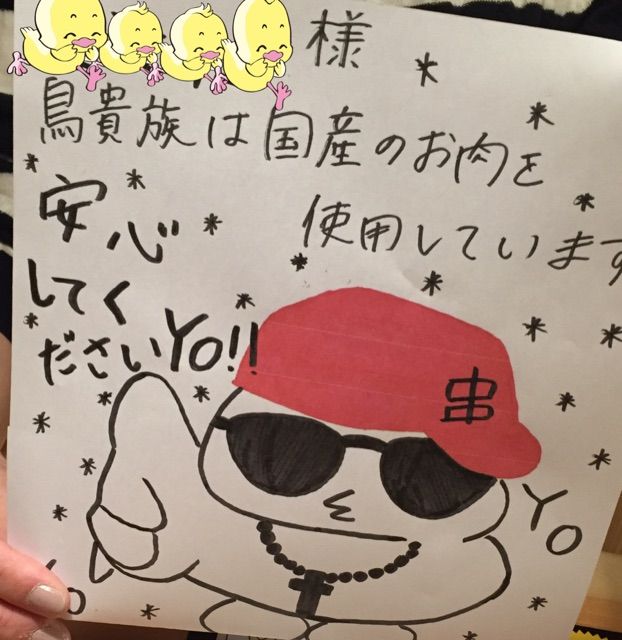 様
鳥貴族は国産のお肉を
使用しています
安心
してく
ださいYO!!
串
YO
Yo